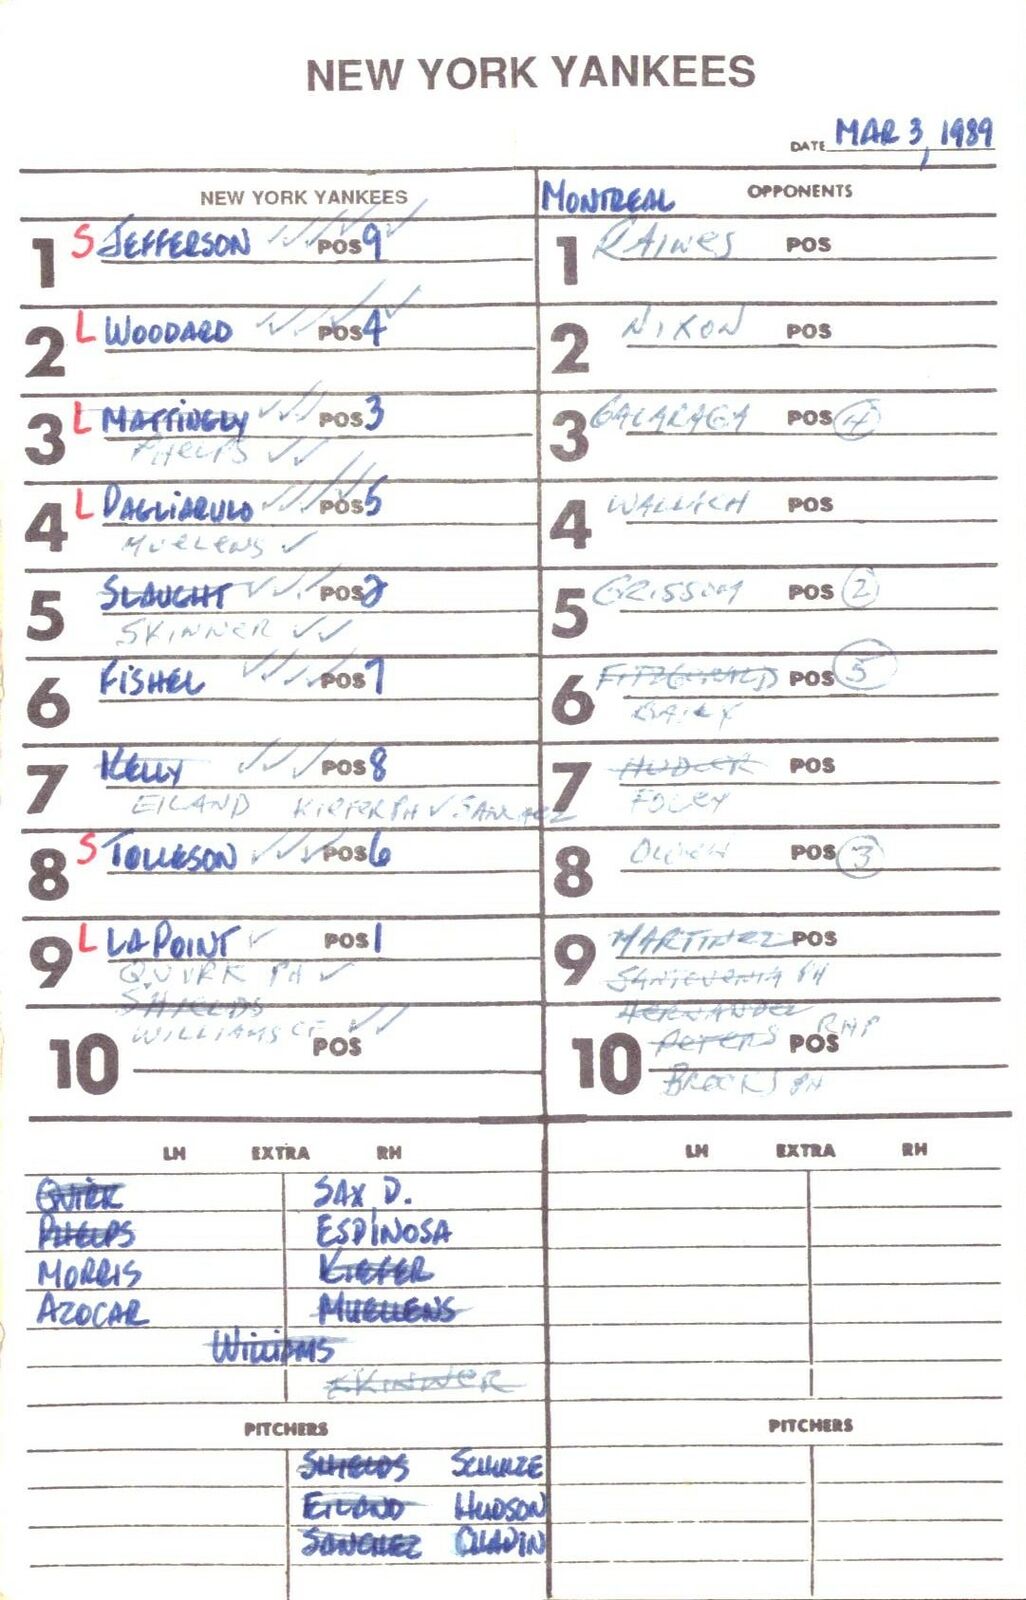 NEW YORK YANKEES
DATE MAR 3, 1989
NEW YORK YANKEES
1 S JEFFERSON POS 9
2 L WOODARD POS 4
3 L MATTINGLY POS 3
PHELPS
4 L PAGLIARULO POS 5
MUELLENS
5 SLAUGHT POS 2
SKINNER
6 FISHEL POS 7
7 KELLY POS 8
EILAND KIEFER PH SANCHEZ
8 S TOLLESON POS 6
9 L LAPOINT POS 1
QUIRK PH
SHIELDS
WILLIAMS CF
10 POS
MONTREAL OPPONENTS
1 RAINES POS
2 NIXON POS
3 GALARAGA POS 4
4 WALLICH POS
5 GRISSOM POS 2
6 FITZGERALD POS 5
7 HUDLER POS
FOLEY
8 POS 3
9 MARTINEZ POS
PH
HERNANDEZ
10 PETERS RHP POS
BROOKS PH
LH EXTRA RH
QUIRK SAX D.
PHELPS ESPINOSA
MORRIS KIEFER
AZOCAR MUELLENS
WILLIAMS
SKINNER
PITCHERS
SHIELDS SCHULZE
EILAND HUDSON
SANCHEZ
LH EXTRA RH
PITCHERS